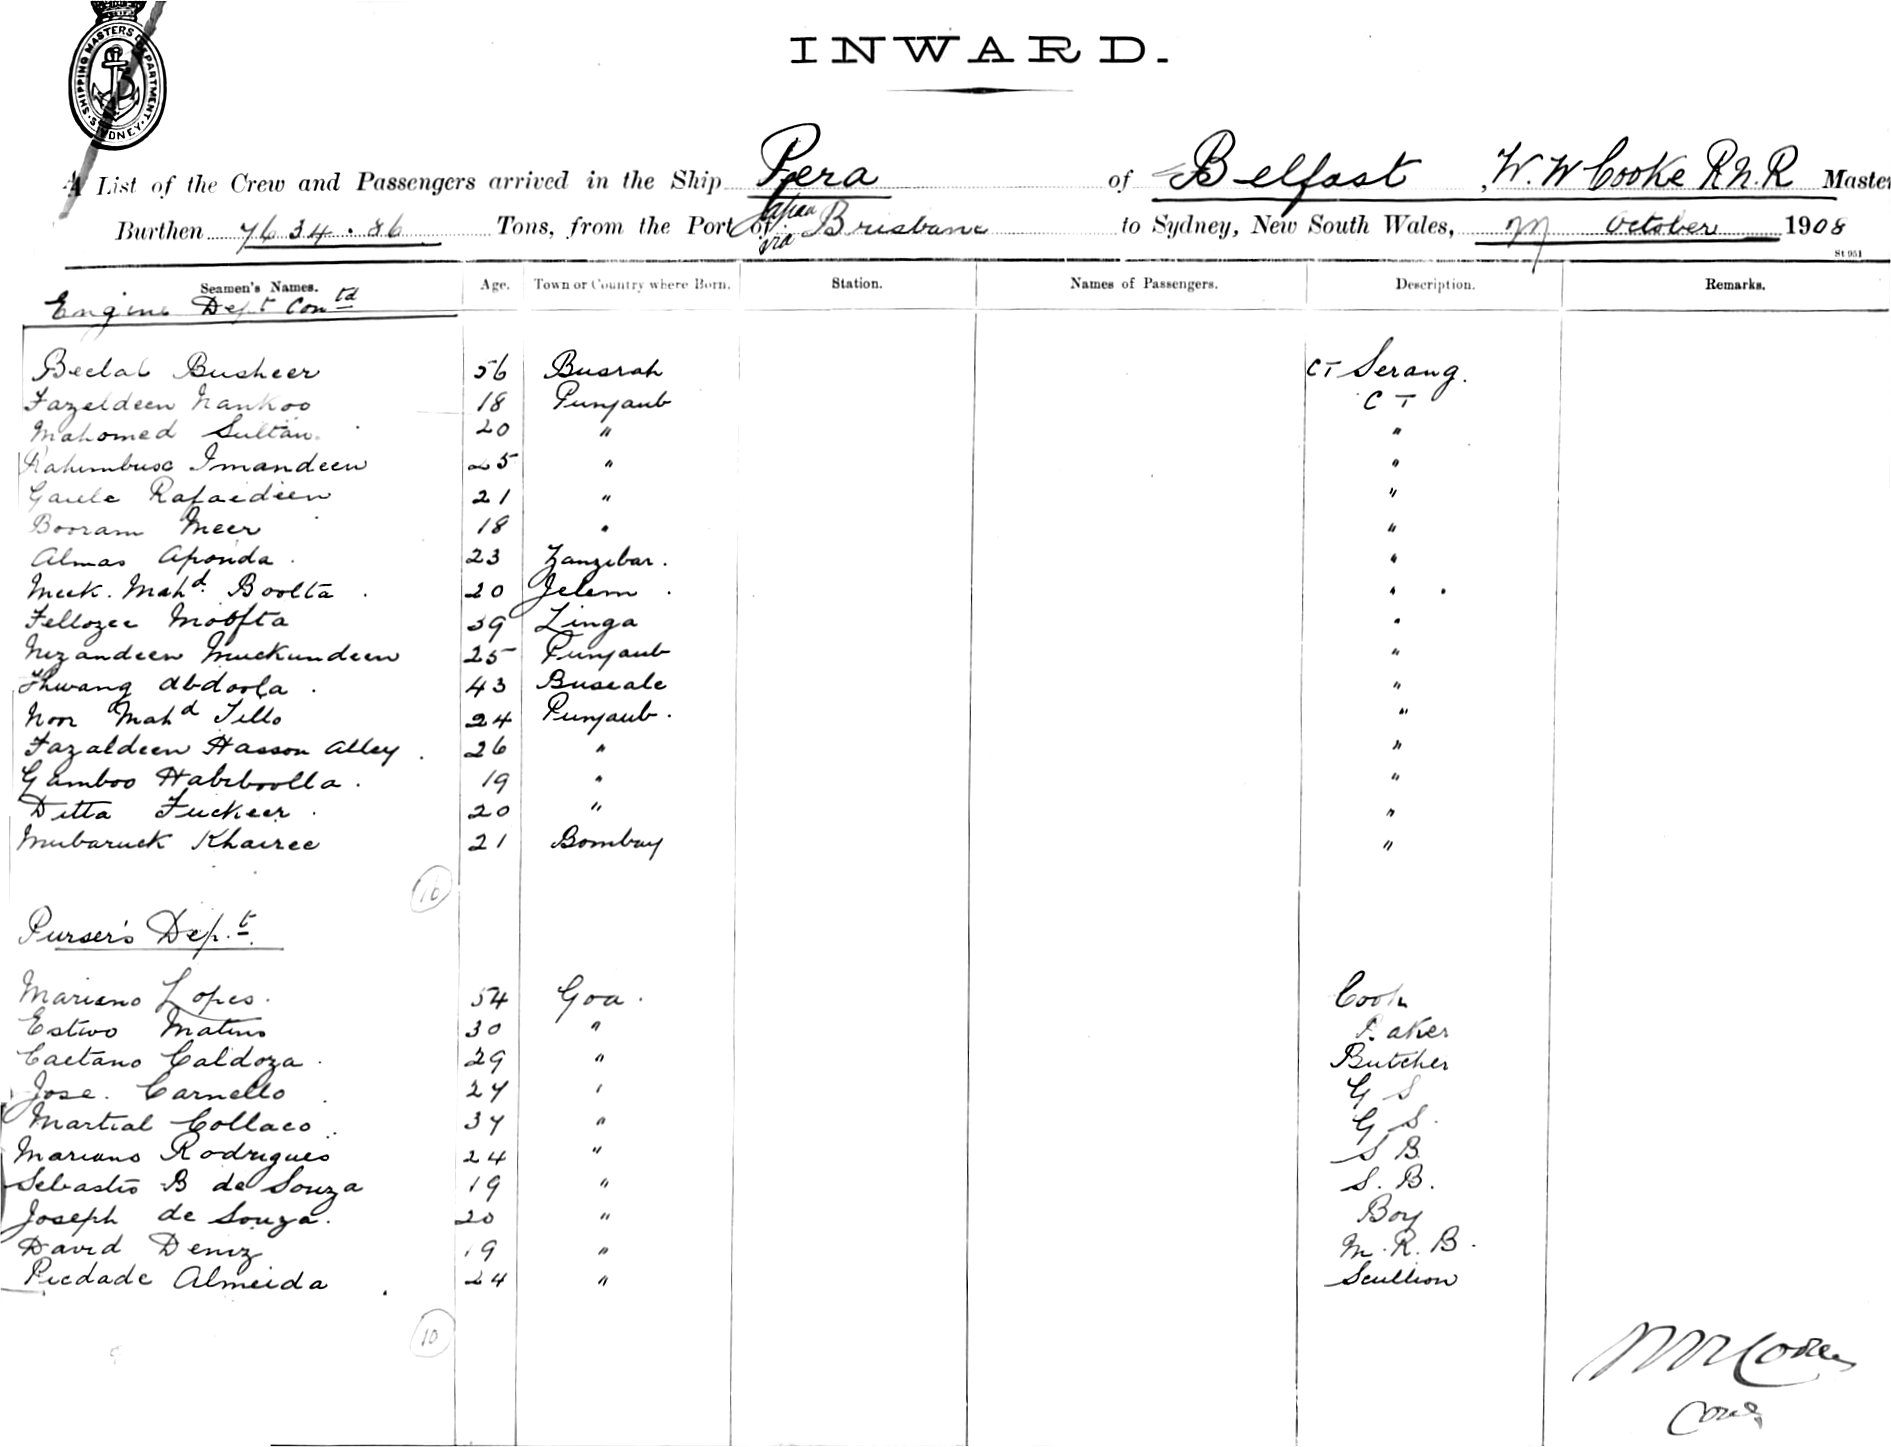 SHIPPING MASTERS DEPARTMENT · SYDNEY ·
INWARD.
A List of the Crew and Passengers arrived in the Ship Pera of Belfast, W. W Cooke R.N.R Master
Burthen 7634.86 Tons, from the Port of Japan via Brisbane to Sydney, New South Wales, October 1908
St 951
Seamen's Names. Age. Town or Country where Born. Station. Names of Passengers. Description. Remarks.
Engine Dept Contd
Beelal Busheer 56 Busrah CT Serang.
Fazeldeen Nankoo 18 Punjaub C T
Mahomed Sultan. 20 " "
Rahimbux Imandeen 25 " "
Rafaedeen 21 " "
Booram Meer 18 " "
Almas Aponda. 23 Zanzibar. "
Meek. Mahd. Boolta. 20 Jelem. "
Fellozee Moofta 39 Linga "
Nizandeen Muckundeen 25 Punjaub "
Abdoola. 43 Buseale "
Noor Mahd Tello 24 Punjaub. "
Fazaldeen Hasson Alley. 26 " "
Gamboo Habiboolla. 19 " "
Ditta Fuckeer. 20 " "
Mubaruck Khairee 21 Bombay "
16
Purser's Dept.
Mariano Lopes. 54 Goa. Cook
Estivo Matins 30 " Baker
Caetano Caldoza. 29 " Butcher
Jose. Carnello. 27 " G S
Martial Collaco. 37 " G S.
Mariano Rodrigues 24 " S B
Sebastio B de Souza 19 " S. B.
Joseph de Souza. 20 " Boy
David Deniz 19 " M. R. B.
Piedade Almeida. 24 " Scullion
10
W W Cooke